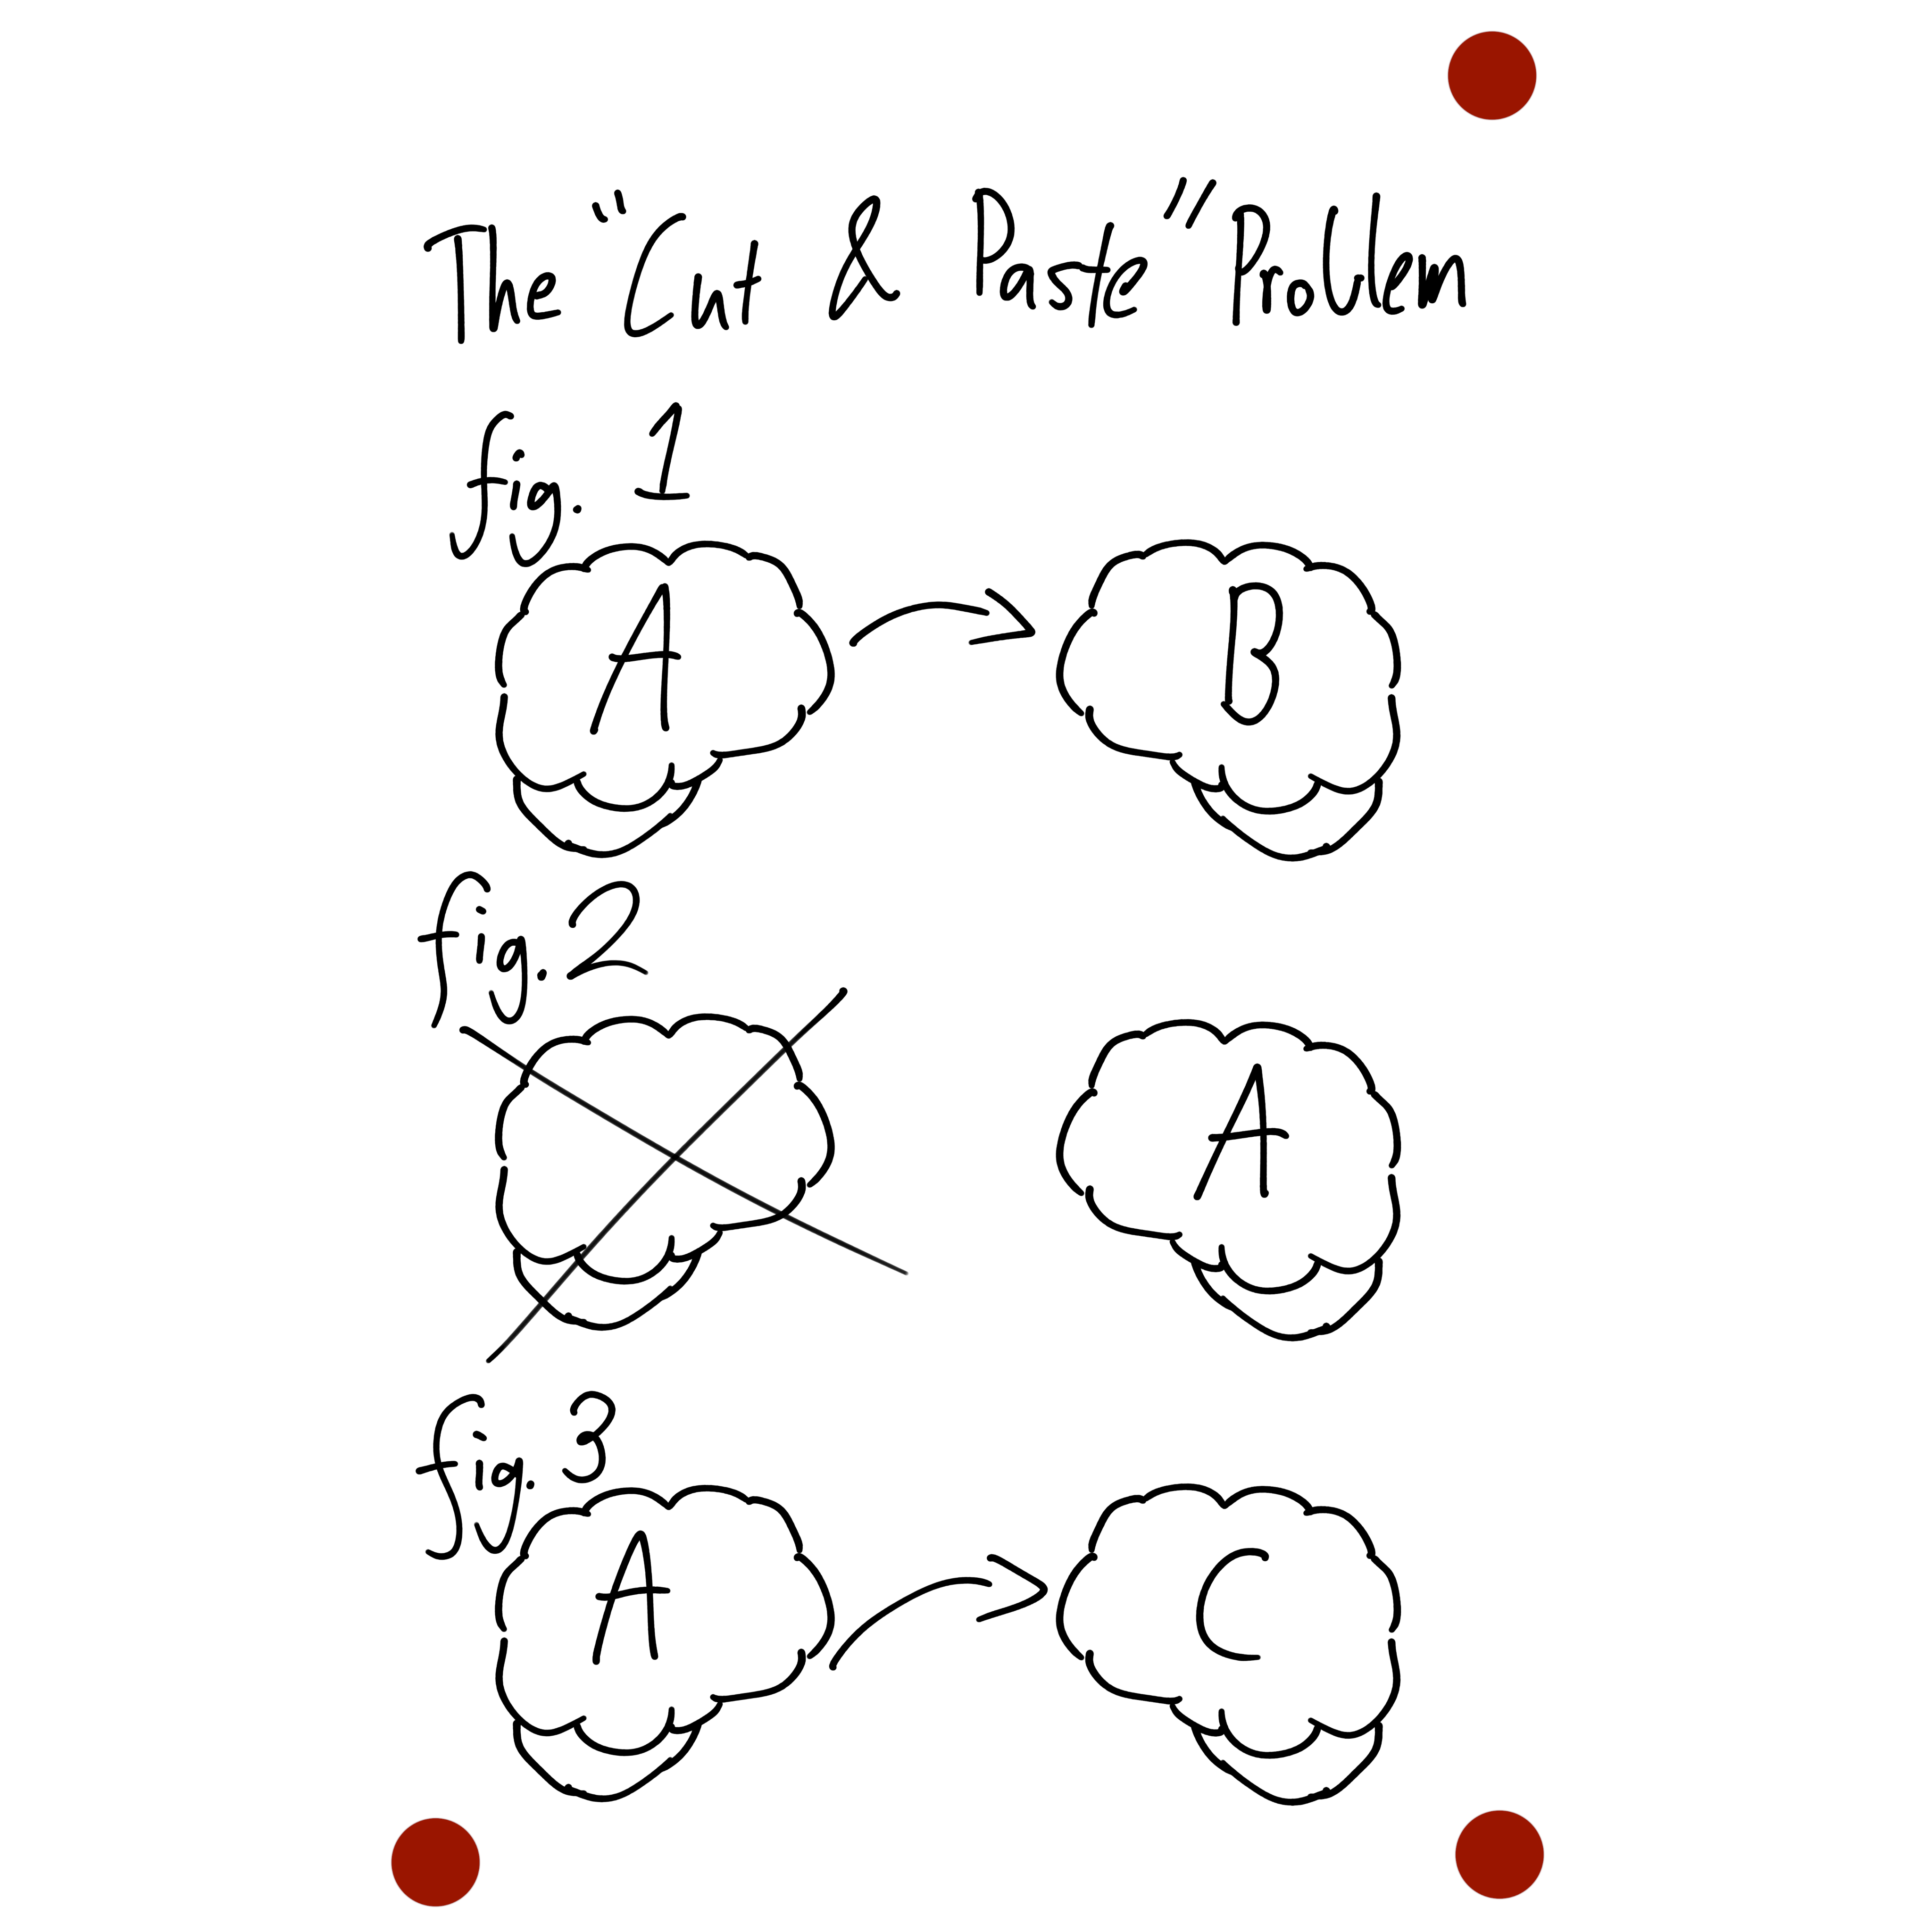 The "Cut & Paste" Problem
fig. 1
A
B
fig. 2
A
fig. 3
A
C